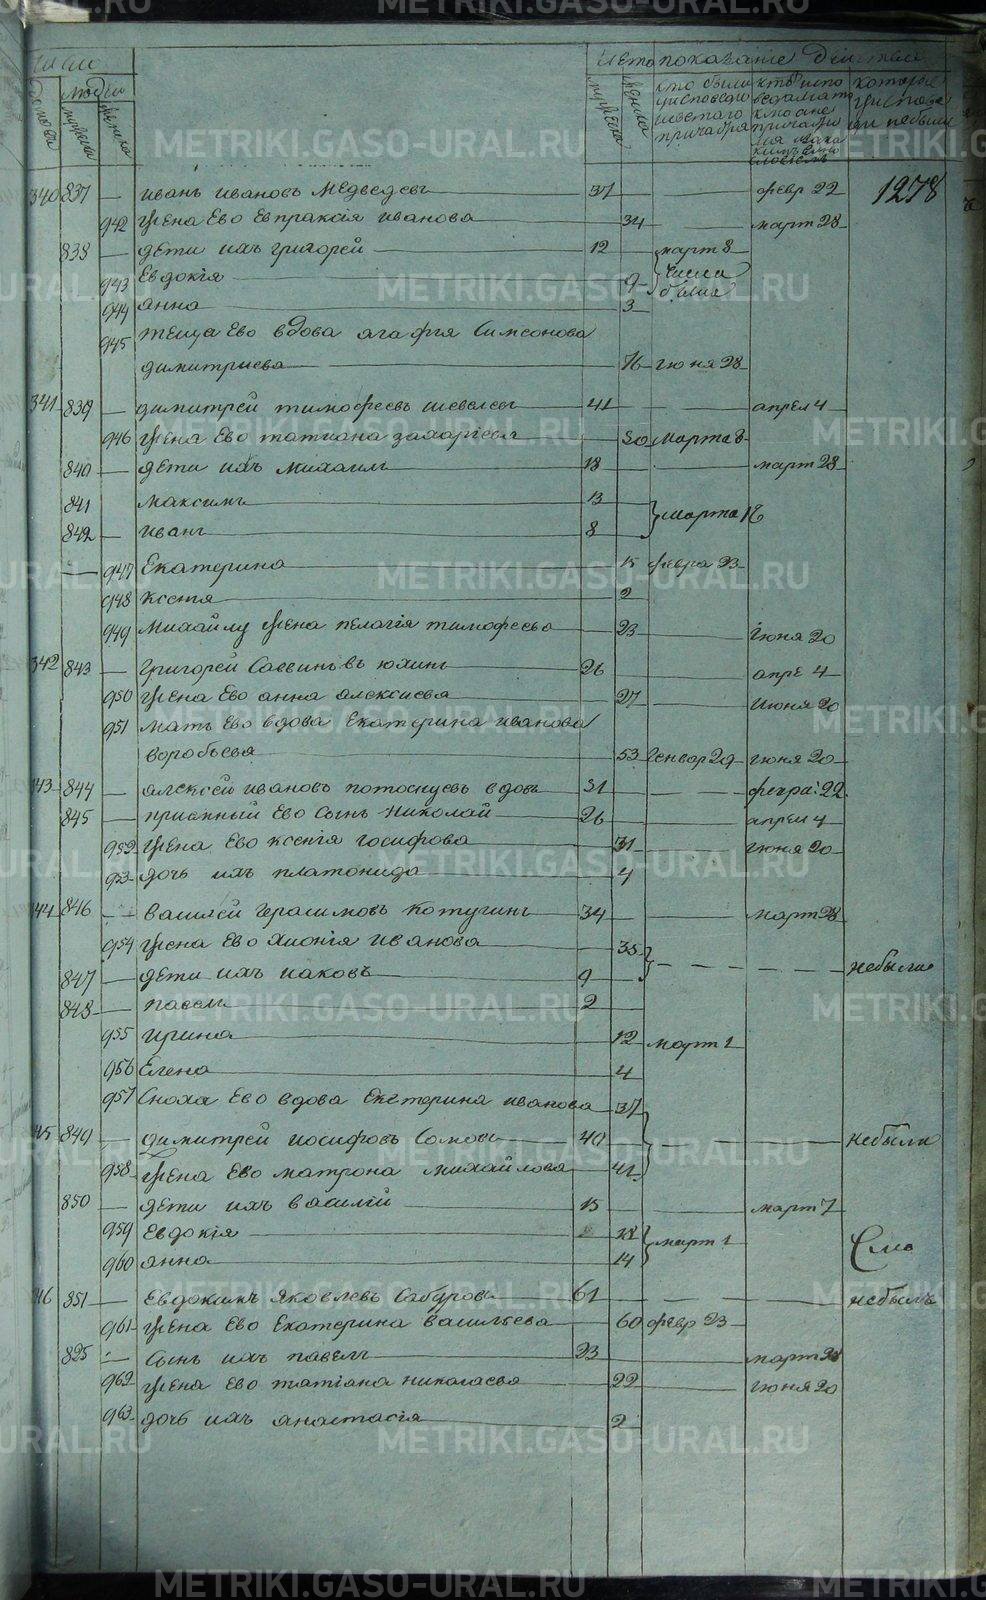 число
домовъ людей
мужеска женска
лета показание действа
мужеска женска
кто были у исповеди и святого причастия
которые у исповеди небыли
1278
340 837 — иванъ ивановъ Медведевъ 37 — февр 22
942 жена Ево Евпраксiя иванова 34 — март 28
838 — дети ихъ григорей 12 — март 8
943 Евдокiя 9 числа
944 анна 3 были
945 теща Ево вдова агафия Симеонова
димитриева 76 iюня 28
341 839 — димитрей тимофеевъ шевелевъ 41 — апрел 4
946 жена Ево татиана захариева 30 Марта 8
840 — дети ихъ Михаилъ 18 — март 28
841 максимъ 13
842 — иванъ 8 марта 16
947 Екатерина 15 февра 23
948 Ксенiя 2
949 Михайлу жена пелагiя тимофеева 23 — Iюня 20
342 843 — григорей Саввинъ въ юхинъ 26 — апре 4
950 жена Ево анна алексиева 27 — июня 20
951 мать Ево вдова Екатерина иванова
воробьева 53 генвар 29 iюня 20
343 844 — алексей ивановъ потоскуевъ вдовъ 51 — февра: 22
845 — приемный Ево Сынъ Николай 26 — апрел 4
952 жена Ево ксенiя iосифова 31 — iюня 20
953 дочь ихъ платонида 4
344 846 — василей герасимовъ котугинъ 34 — март 28
954 жена Ево хионiя иванова 35
847 — дети ихъ иаковъ 9 — небыли
848 — павелъ 2
955 ирина 12 март 1
956 Елена 4
957 Сноха Ево вдова Екатерина иванова 37
345 849 — димитрей иосифовъ Сомовъ 40 — небыли
958 жена Ево матрона михайлова 41
850 — дети ихъ василий 15 — март 7
959 Евдокiя 18 март 1
960 анна 14
346 851 — Евдокимъ Яковлевъ Сабуровъ 61 — небылъ
961 жена Ево Екатерина васильева 60 февр 23
825 — Сынъ ихъ павелъ 23 — март 28
962 жена Ево татiана николаева 22 — iюня 20
963 дочь ихъ анастасiя 2
METRIKI.GASO-URAL.RU